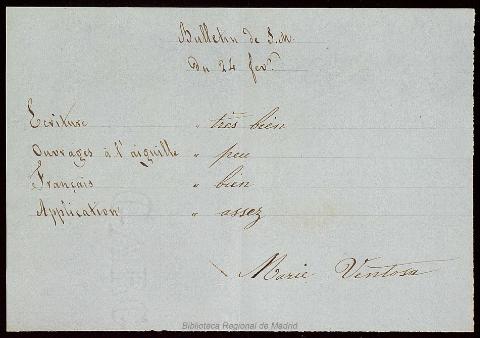 Bulletin de S. M.
du 24 fevr.
Ecriture " très bien
Ouvrages à l'aiguille " peu
Français " bien
Application " assez
Marie Ventosa
Biblioteca Regional de Madrid